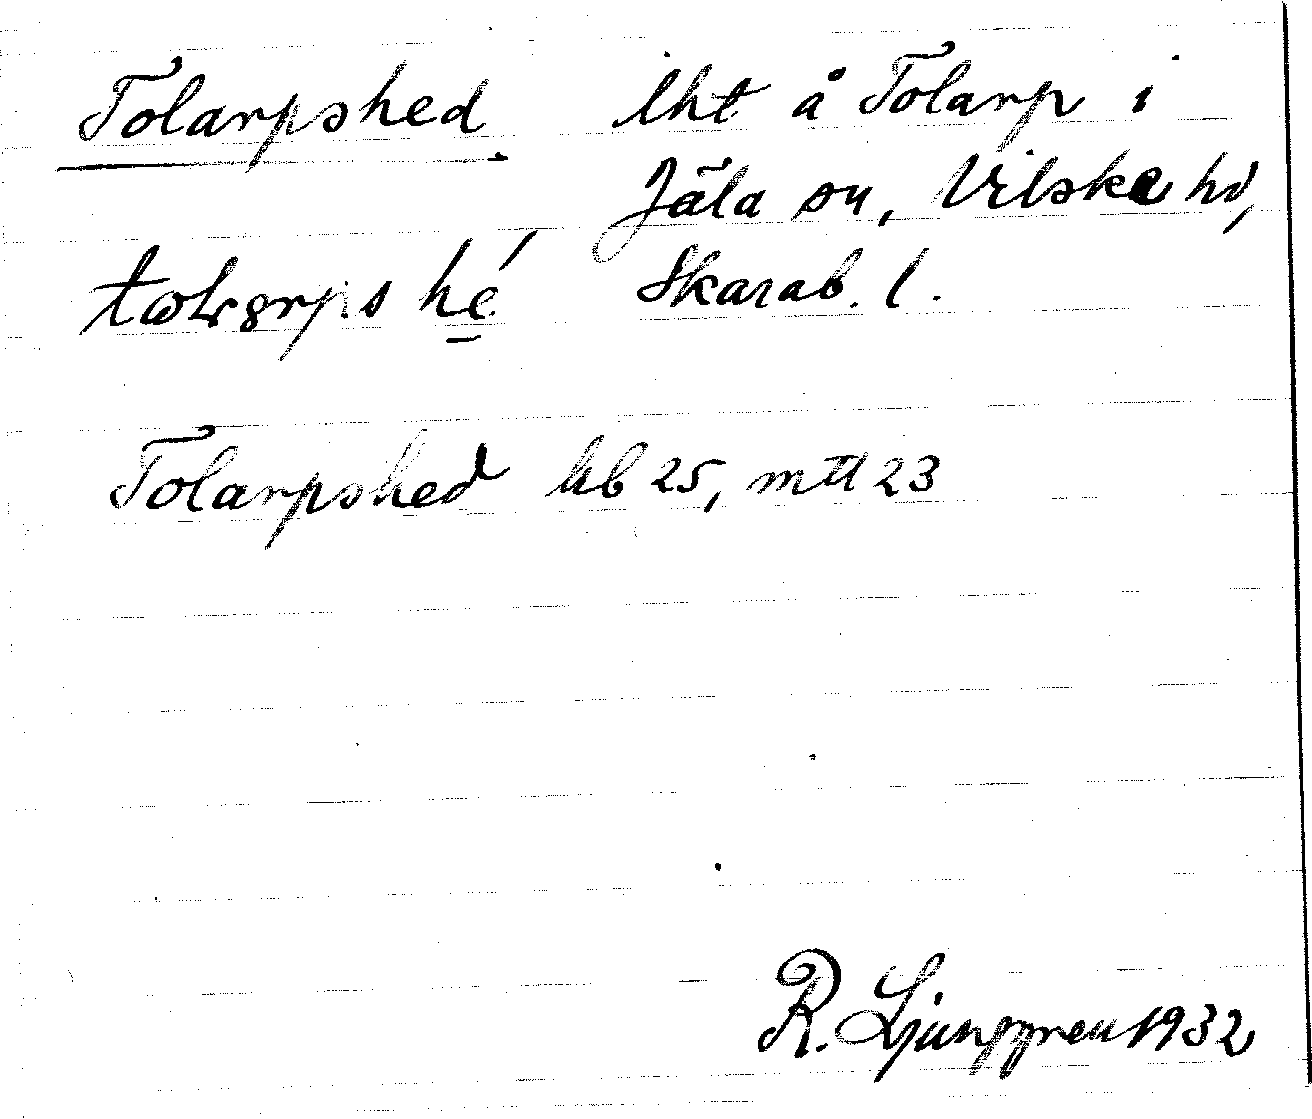 Tolarpshed lht å Tolarp i
Jäla sn, Vilske hd,
Skarab. l.
Tolarpshed hb 25, mtl 23
R. Ljunggren 1932